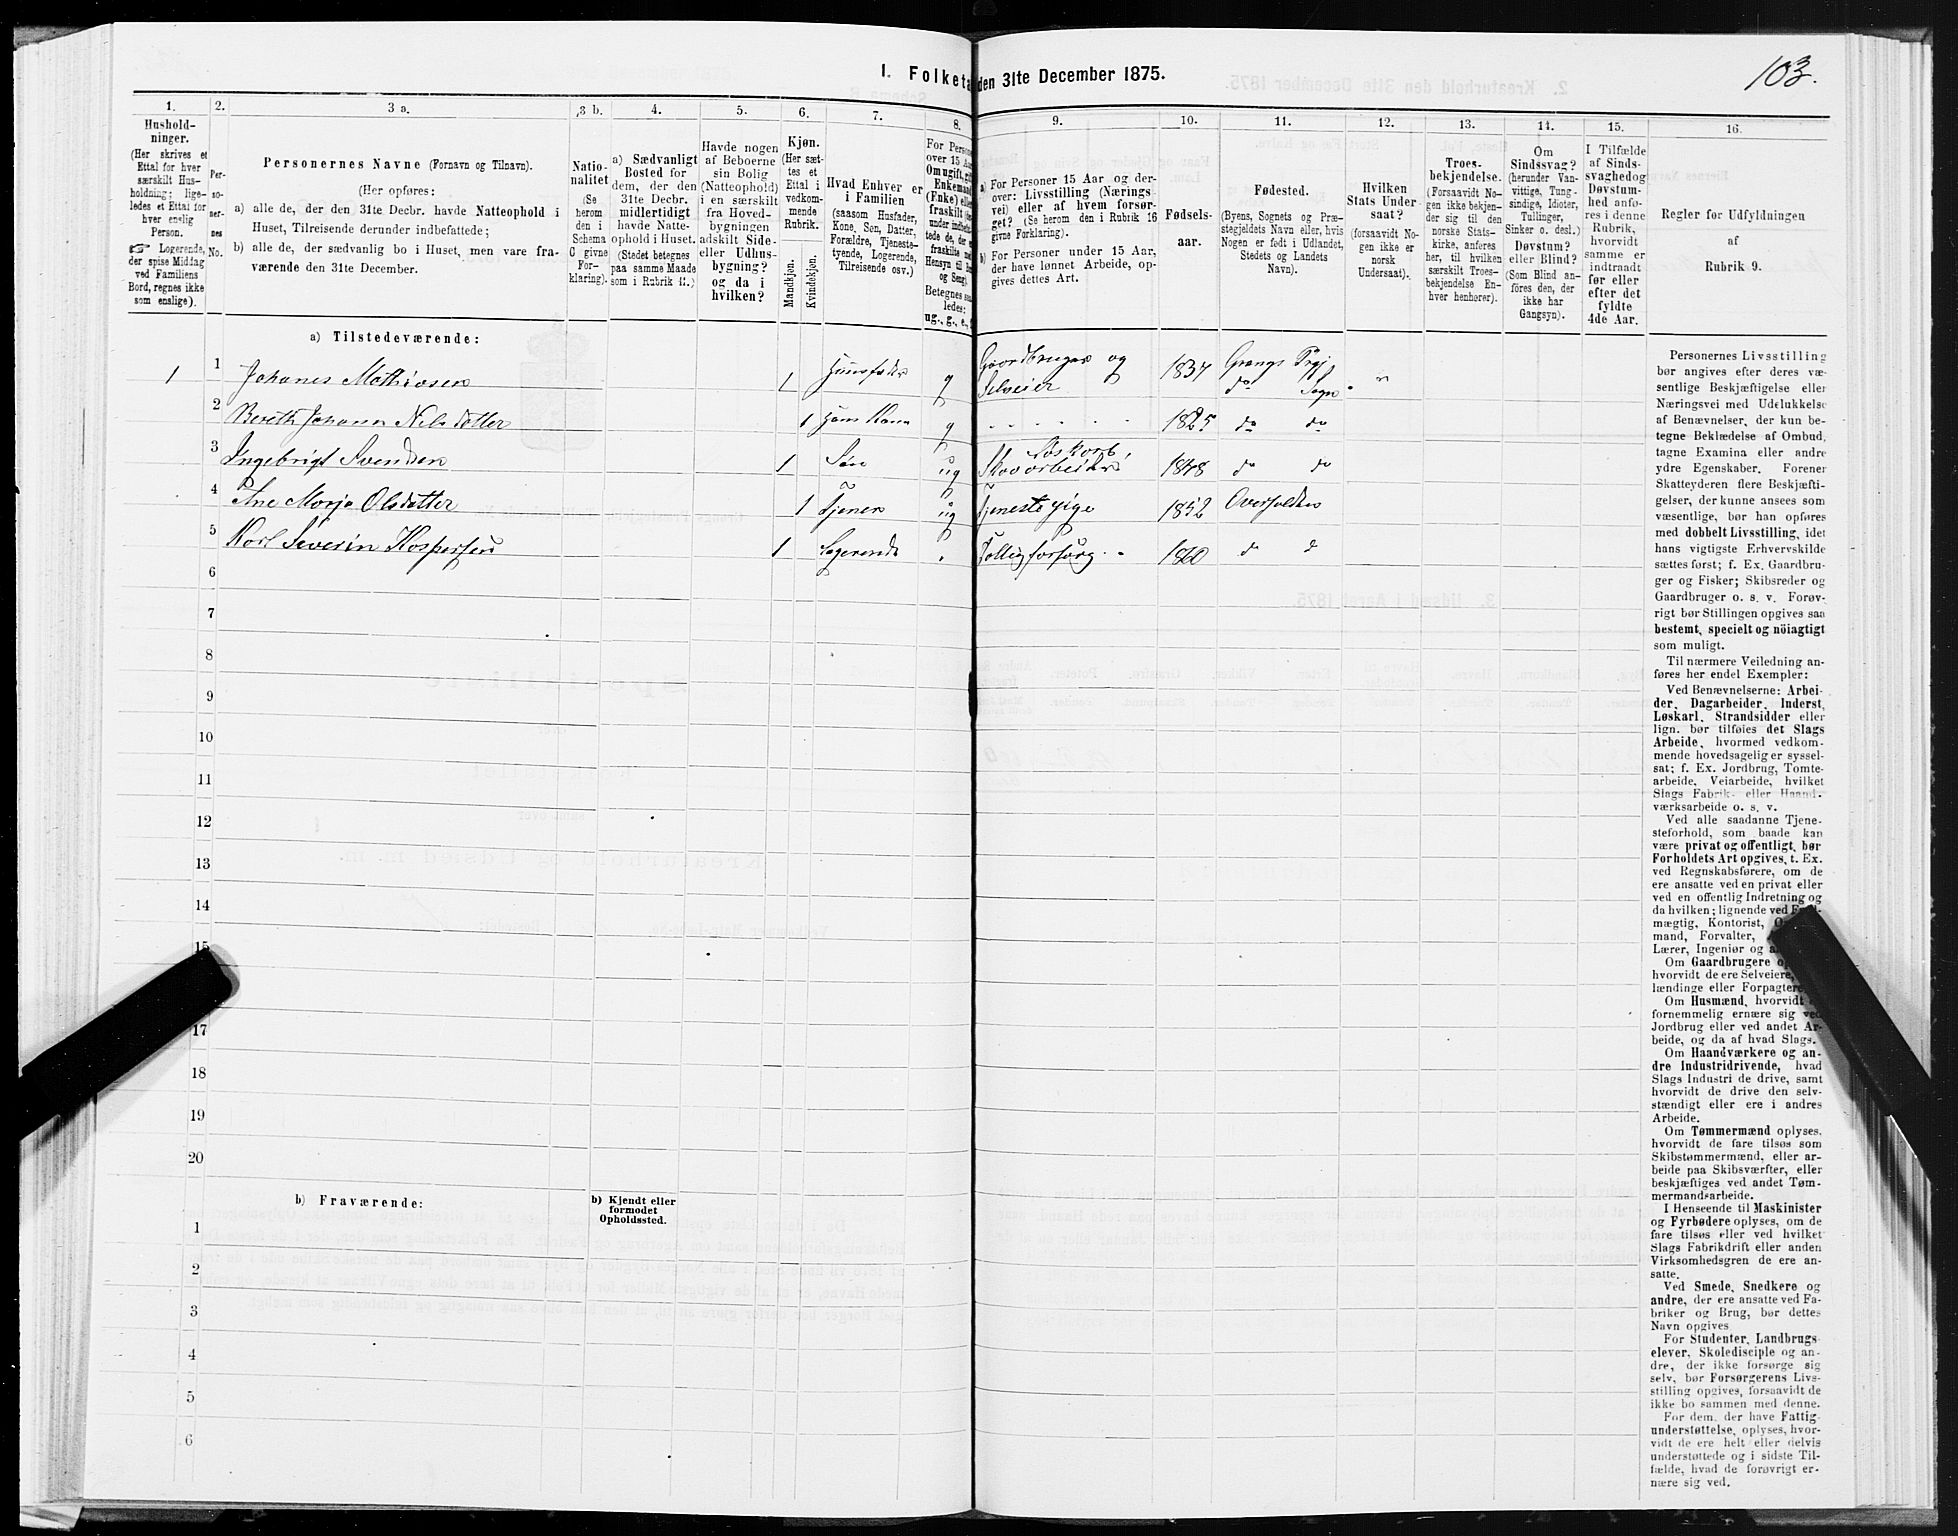 103.
1. Folketa den 31te December 1875.
1. 2. 3 a. 3 b. 4. 5. 6. 7. 8. 9. 10. 11. 12. 13. 14. 15. 16.
Hushold-
ninger.
(Her skrives et
Ettal for hver
særskilt Hus-
holdning; lige-
ledes et Ettal for
hver enslig
Person.
☞ Logerende,
der spise Middag
ved Familiens
Bord, regnes ikke
som enslige).
Per-
so-
ner-
nes
No.
Personernes Navne (Fornavn og Tilnavn).
(Her opføres:
a) alle de, der den 31te Decbr. havde Natteophold i
Huset, Tilreisende derunder indbefattede;
b) alle de, der sædvanlig bo i Huset, men vare fra-
værende den 31te December.
Natio-
nalitet
(Se
herom
den i
Schema
C givne
For-
klaring).
a) Sædvanligt
Bosted for
dem, der den
31te Decbr.
midlertidigt
havde Natte-
ophold i Huset.
(Stedet betegnes
paa samme Maade
som i Rubrik 11.)
Havde nogen
af Beboerne
sin Bolig
(Natteophold)
i en særskilt
fra Hoved-
bygningen
adskilt Side-
eller Udhus-
bygning?
og da i
hvilken?
Kjøn.
(Her sæt-
tes et
Ettal i
vedkom-
mende
Rubrik.
Mandkjøn.
Kvindekjøn.
Hvad Enhver er
i Familien
(saasom Husfader,
Kone, Søn, Datter,
Forældre, Tjeneste-
tyende, Logerende,
Tilreisende osv.)
For Person
over 15 Aar
Om ugift, gift
Enkemand
(Enke) eller
fraskilt
Betegnes
ledes:
ug., g., e., f.
a) For Personer 15 Aar og der-
over: Livsstilling (Nærings-
vei) eller af hvem forsør-
get? (Se herom den i Rubrik 16
givne Forklaring).
b) For Personer under 15 Aar,
der have lønnet Arbeide, op-
gives dettes Art.
Fødsels-
aar.
Fødested.
(Byens, Sognets og Præ-
stegjeldets Navn eller, hvis
Nogen er født i Udlandet,
Stedets og Landets
Navn).
Hvilken
Stats Under-
saat?
(forsaavidt No-
gen ikke er
norsk
Undersaat).
Troes-
bekjendelse.
(Forsaavidt No-
gen ikke bekjen-
der sig til den
norske Stats-
kirke, anføres
her, til hvilken
særskilt Troes-
bekjendelse En-
hver henhører).
Om
Sindssvag?
(herunder Van-
vittige, Tung-
sindige, Idioter,
Tullinger,
Sinker o. desl.)
Døvstum?
eller Blind?
(Som Blind an-
føres den, der
ikke har
Gangsyn).
I Tilfælde
af Sinds-
svaghed og
Døvstum-
hed anfø-
res i denne
Rubrik,
hvorvidt
samme er
indtraadt
før eller
efter det
fyldte
4de Aar.
Regler for Udfyldningen
af
Rubrik 9.
a) Tilstedeværende:
1 1 Johanes Mathiasen 1 Huusfader g Gaardbruger og Selveier 1837 Grongs Prgj do Sogn
2 Bereth Johana Nils datter 1 Hans Kone g 1825 do do
3 Ingebrigt Svendsen 1 Søn ug Skovarbeider 1848 do do
4 Ane Marja Olsdatter 1 Tjener ug Tjenestepige 1852 Overhalden
5 Karl Severin Kospersen 1 Logerende 1860 d d
6
7
8
9
10
11
12
13
14
15
17
18
19
20
b) Fraværende:
b) Kjendt eller
formodet
Opholdssted.
1
2
3
4
5
6
Personernes Livsstilling
bør angives efter deres væ-
sentlige Beskjæftigelse eller
Næringsvei med Udelukkelse
af Benævnelser, der kun be-
tegne Beklædelse af Ombud,
tagne Examina eller andre
ydre Egenskaber. Forener
Skatteyderen flere Beskjæfti-
gelser, der kunne ansees som
væsentlige, bør han opføres
med dobbelt Livsstilling, idet
hans vigtigste Erhvervskilde
sættes først; f. Ex. Gaardbru-
ger og Fisker; Skibsreder og
Gaardbruger o. s. v. Forøv-
rigt bør Stillingen opgives saa
bestemt, specielt og nöiagtigt
som muligt.
Til nærmere Veiledning an-
føres her endel Exempler:
Ved Benævnelserne: Arbei-
der, Dagarbeider, Inderst,
Løskarl, Strandsidder eller
lign. bør tilføies det Slags
Arbeide, hvormed vedkom-
mende hovedsagelig er syssel-
sat; f. Ex. Jordbrug, Tomte-
arbeide, Veiarbeide, hvilket
Slags Fabrik- eller Haand-
værksarbeide o. s. v.
Ved alle saadanne Tjene-
steforhold, som baade kan
være privat og offentligt, bør
Forholdets Art opgives, t. Ex.
ved Regnskabsførere, om de
ere ansatte ved en privat eller
ved en offentlig Indretning og
da hvilken; lignende ved Fuld-
mægtig, Kontorist,
mand, Forvalter,
Lærer, Ingeniør og
Om Gaardbrugere
hvorvidt de ere Selveiere,
lændinge eller Forpagtere
Om Husmænd, hvorvidt
fornemmelig ernære sig ved
Jordbrug eller ved andet Ar-
beide, og da af hvad Slags.
Om Haandværkere og an-
dre Industridrivende, hvad
Slags Industri de drive, samt
hvorvidt de drive den selv-
stændigt eller ere i andres
Arbeide.
Om Tømmermænd oplyses,
hvorvidt de fare tilsøs som
Skibstømmermænd, eller ar-
beide paa Skibsværfter, eller
beskjæftiges ved andet Tøm-
mermandsarbeide.
I Henseende til Maskinister
og Fyrbødere oplyses, om de
fare tilsøs eller ved hvilket
Slags Fabrikdrift eller anden
Virksomhedsgren de ere an-
satte.
Ved Smede, Snedkere og
andre, der ere ansatte ved Fa-
briker og Brug, bør dettes
Navn opgives.
For Studenter, Landbrugs-
elever, Skoledisciple og an-
dre, der ikke forsørge sig
selv, bør Forsørgerens Livs-
stilling opgives, forsaavidt de
ikke bo sammen med denne.
For dem, der have Fattig-
understøttelse, oplyses, hvor-
vidt de ere helt eller delvis
understøttede og i sidste Til-
fælde, hvad de forøvrigt er-
nære sig ved.